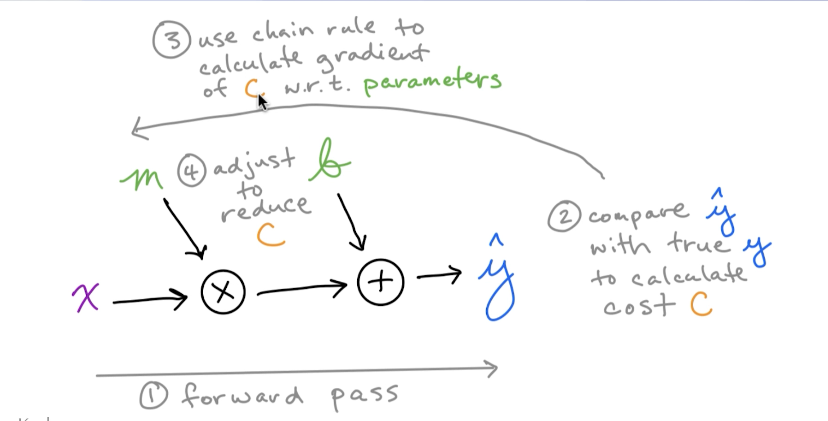 ③ use chain rule to
calculate gradient
of C w.r.t. parameters
m ④ adjust b
to
reduce
C
② compare ŷ
with true y
to calculate
cost C
x × + ŷ
① forward pass